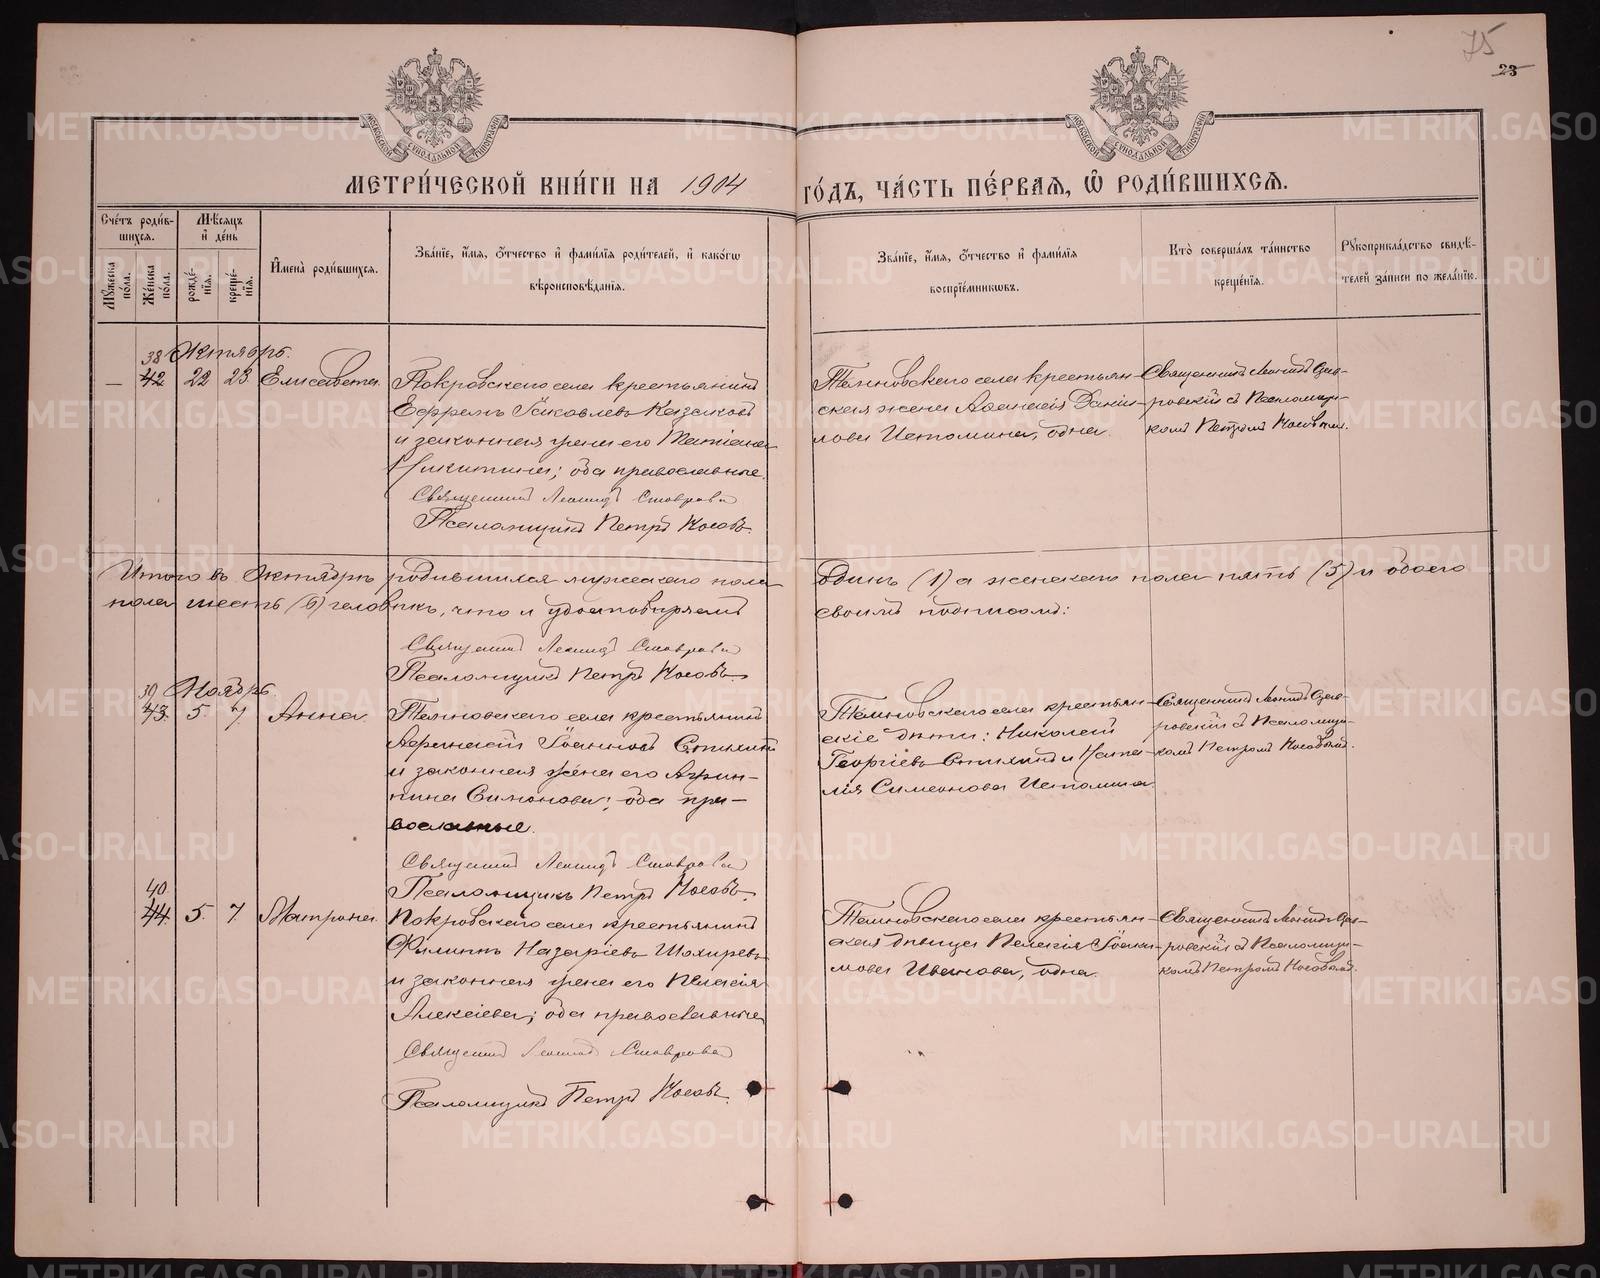 75
23
МЕТРИ́ЧЕСКОЙ КНИ́ГИ НА 1904 ГО́ДЪ, ЧА́СТЬ ПЕ́РВАЯ, Ѽ РОДИ́ВШИХСЯ.
Сче́тъ роди́вшихся.
Мꙋ́жеска по́ла.
Же́нска по́ла.
Мѣ́сяцъ и҆ де́нь
рожде́нїя.
креще́нїя.
И҆мена̀ роди́вшихся.
Зва́нїе, и҆́мя, ѻ҆́тчество и҆ фами́лїя роди́телей, и҆ како́гѡ
вѣроисповѣ́данїя.
Зва́нїе, и҆́мя, ѻ҆́тчество и҆ фами́лїя
воспрїе́мникѡвъ.
Кто̀ соверша́лъ та́инство
креще́нїя.
Рꙋкоприкла́дство свидѣ́-
телей за́писи по жела́нїю.
38 Октябрь.
— 42 22 23 Елисавета.
Покровскаго села крестьянинъ
Ефремъ Іаковлевъ Казаковъ
и законная жена его Татіана
Никитина; оба православные.
Священникъ Леонидъ
Псаломщикъ Петръ Косовъ.
Темновскаго села крестьян-
ская жена Аѳанасія Дани-
лова Истомина, одна.
Священникъ Леонидъ
ровскій съ Псаломщи-
комъ Петромъ Косовымъ.
Итого въ Октябрѣ родившихся мужескаго пола
одинъ (1) а женскаго пола пять (5) и обоего
пола шесть (6) человѣкъ, что и удостовѣряемъ
своимъ подписомъ:
Священникъ Леонидъ
Псаломщикъ Петръ Косовъ.
39 Ноябрь.
43. 5. 7. Анна
Темновскаго села крестьянинъ
Аѳанасій Іоанновъ
и законная жена его Агрип-
пина Симонова; оба пра-
вославные.
Священникъ Леонидъ
Псаломщикъ Петръ Косовъ.
Темновскаго села крестьян-
скіе дѣти: Николай
Георгіевъ и Ната-
лія Симеонова Истомина.
Священникъ Леонидъ
ровскій съ Псаломщи-
комъ Петромъ Косовымъ.
40
44. 5. 7. Матрона.
Покровскаго села крестьянинъ
Филиппъ Назаріевъ Шохиревъ
и законная жена его Пелагія
Алексіева; оба православные
Священникъ Леонидъ
Псаломщикъ Петръ Косовъ.
Темновскаго села крестьян-
ская дѣвица Пелагія Іоаки-
мова Иванова, одна.
Священникъ Леонидъ
ровскій съ Псаломщи-
комъ Петромъ Косовымъ.
METRIKI.GASO-URAL.RU